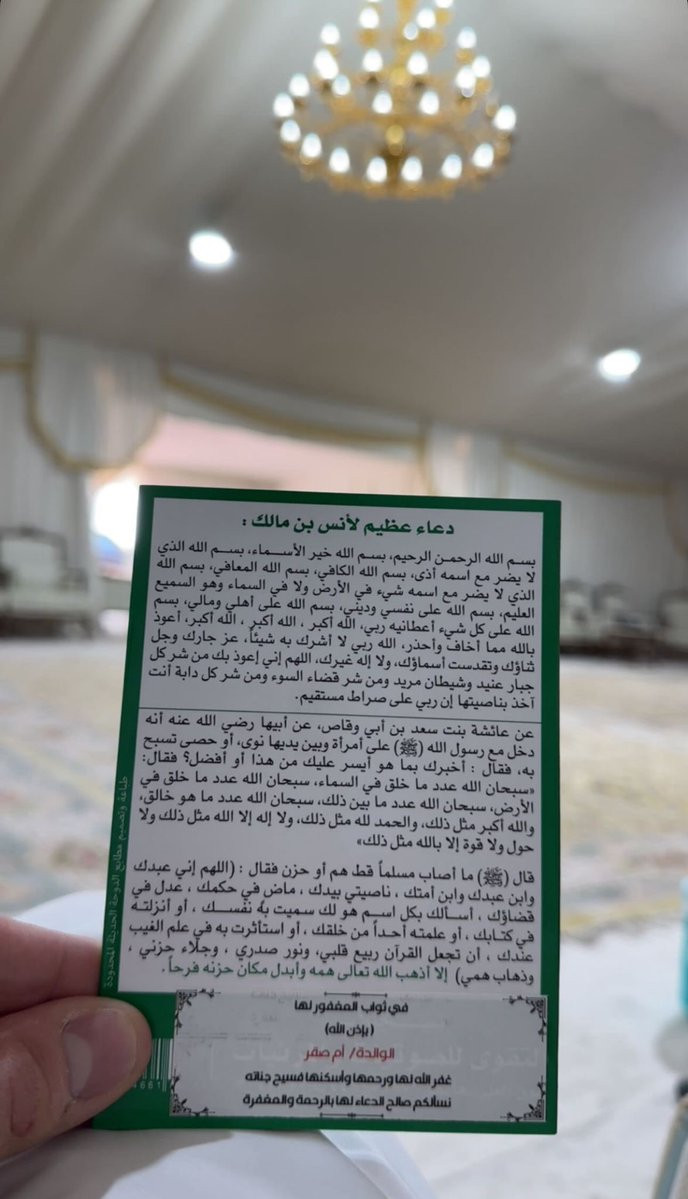 دعاء عظيم لأنس بن مالك :
بسم الله الرحمن الرحيم، بسم الله خير الأسماء، بسم الله الذي
لا يضر مع اسمه أذى، بسم الله الكافي، بسم الله المعافي، بسم الله
الذي لا يضر مع اسمه شيء في الأرض ولا في السماء وهو السميع
العليم، بسم الله على نفسي وديني، بسم الله على أهلي ومالي، بسم
الله على كل شيء أعطانيه ربي، الله أكبر ، الله أكبر ، الله أكبر، أعوذ
بالله مما أخاف وأحذر، الله ربي لا أشرك به شيئاً، عز جارك وجل
ثناؤك وتقدست أسماؤك، ولا إله غيرك، اللهم إني إعوذ بك من شر كل
جبار عنيد وشيطان مريد ومن شر قضاء السوء ومن شر كل دابة أنت
آخذ بناصيتها إن ربي على صراط مستقيم.
عن عائشة بنت سعد بن أبي وقاص، عن أبيها رضي الله عنه أنه
دخل مع رسول الله (ﷺ) على أمرأة وبين يديها نوى، أو حصى تسبح
به، فقال : أخبرك بما هو أيسر عليك من هذا أو أفضل؟ فقال:
«سبحان الله عدد ما خلق في السماء، سبحان الله عدد ما خلق في
الأرض، سبحان الله عدد ما بين ذلك، سبحان الله عدد ما هو خالق،
والله أكبر مثل ذلك، والحمد لله مثل ذلك، ولا إله إلا الله مثل ذلك ولا
حول ولا قوة إلا بالله مثل ذلك»
قال (ﷺ) ما أصاب مسلماً قط هم أو حزن فقال : (اللهم إني عبدك
وابن عبدك وابن أمتك ، ناصيتي بيدك ، ماض في حكمك ، عدل في
قضاؤك ، أسألك بكل اسم هو لك سميت به نفسك ، أو أنزلته
في كتابك ، أو علمته أحداً من خلقك ، أو استأثرت به في علم الغيب
عندك ، أن تجعل القرآن ربيع قلبي، ونور صدري ، وجلاء حزني ،
وذهاب همي) إلا أذهب الله تعالى همه وأبدل مكان حزنه فرحاً.
في ثواب المغفور لها
(بإذن الله)
الوالدة/ أم صقر
غفر الله لها ورحمها وأسكنها فسيح جناته
نسألكم صالح الدعاء لها بالرحمة والمغفرة
طباعة وتصميم مطابع الدوحة الحديثة المحدودة